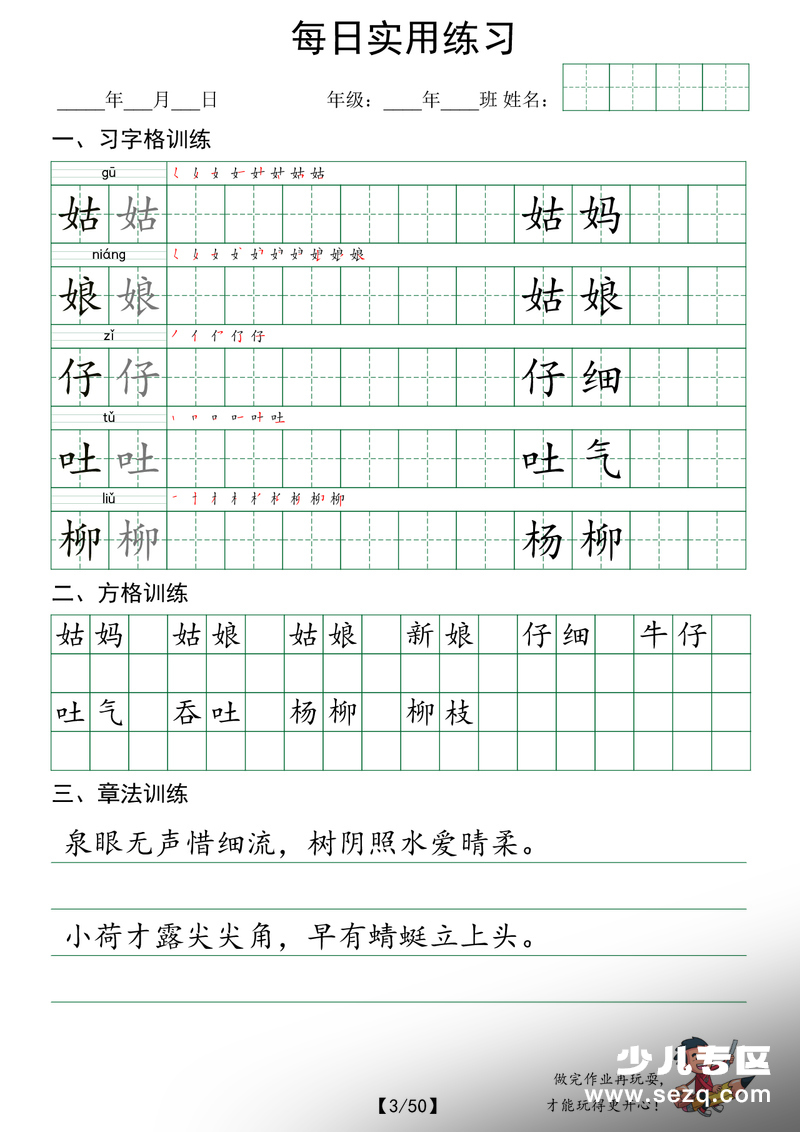 每日实用练习
_____年___月___日 年级：____年____班 姓名：
一、习字格训练
gū
姑 姑 姑 妈
niáng
娘 娘 姑 娘
zǐ
仔 仔 仔 细
tǔ
吐 吐 吐 气
liǔ
柳 柳 杨 柳
二、方格训练
姑妈 姑娘 姑娘 新娘 仔细 牛仔
吐气 吞吐 杨柳 柳枝
三、章法训练
泉眼无声惜细流，树阴照水爱晴柔。
小荷才露尖尖角，早有蜻蜓立上头。
做完作业再玩耍，
才能玩得更开心！
少儿专区
www.sezq.com
【3/50】